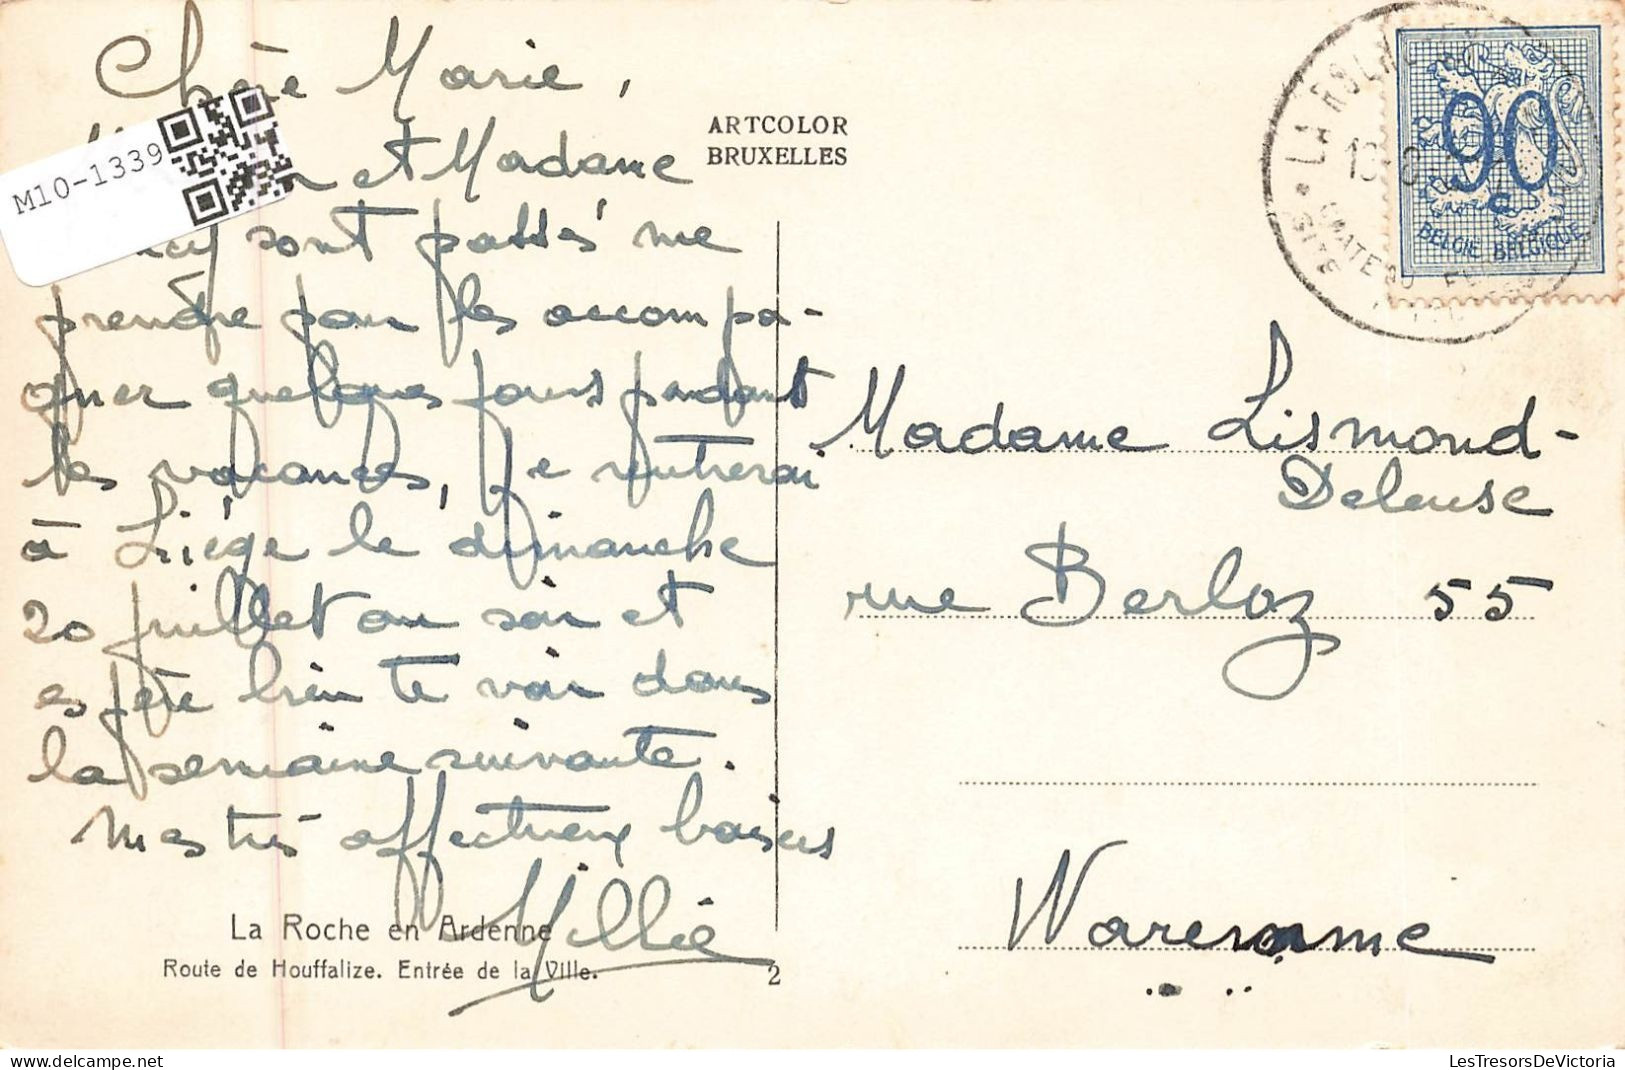 Chère Marie,
et Madame
sont passés me
prendre pour les accompa-
gner quelques jours pendant
les vacances, je rentrerai
à Liége le dimanche
20 juillet au soir et
espère bien te voir dans
la semaine suivante.
Mes très affectueux baisers
Millie
La Roche en Ardenne
Route de Houffalize. Entrée de la Ville.
2
M10-1339
ARTCOLOR
BRUXELLES
90
BELGIE BELGIQUE
Madame Lismond-
Deleuse
rue Berloz 55
Waremme
LesTresorsDeVictoria